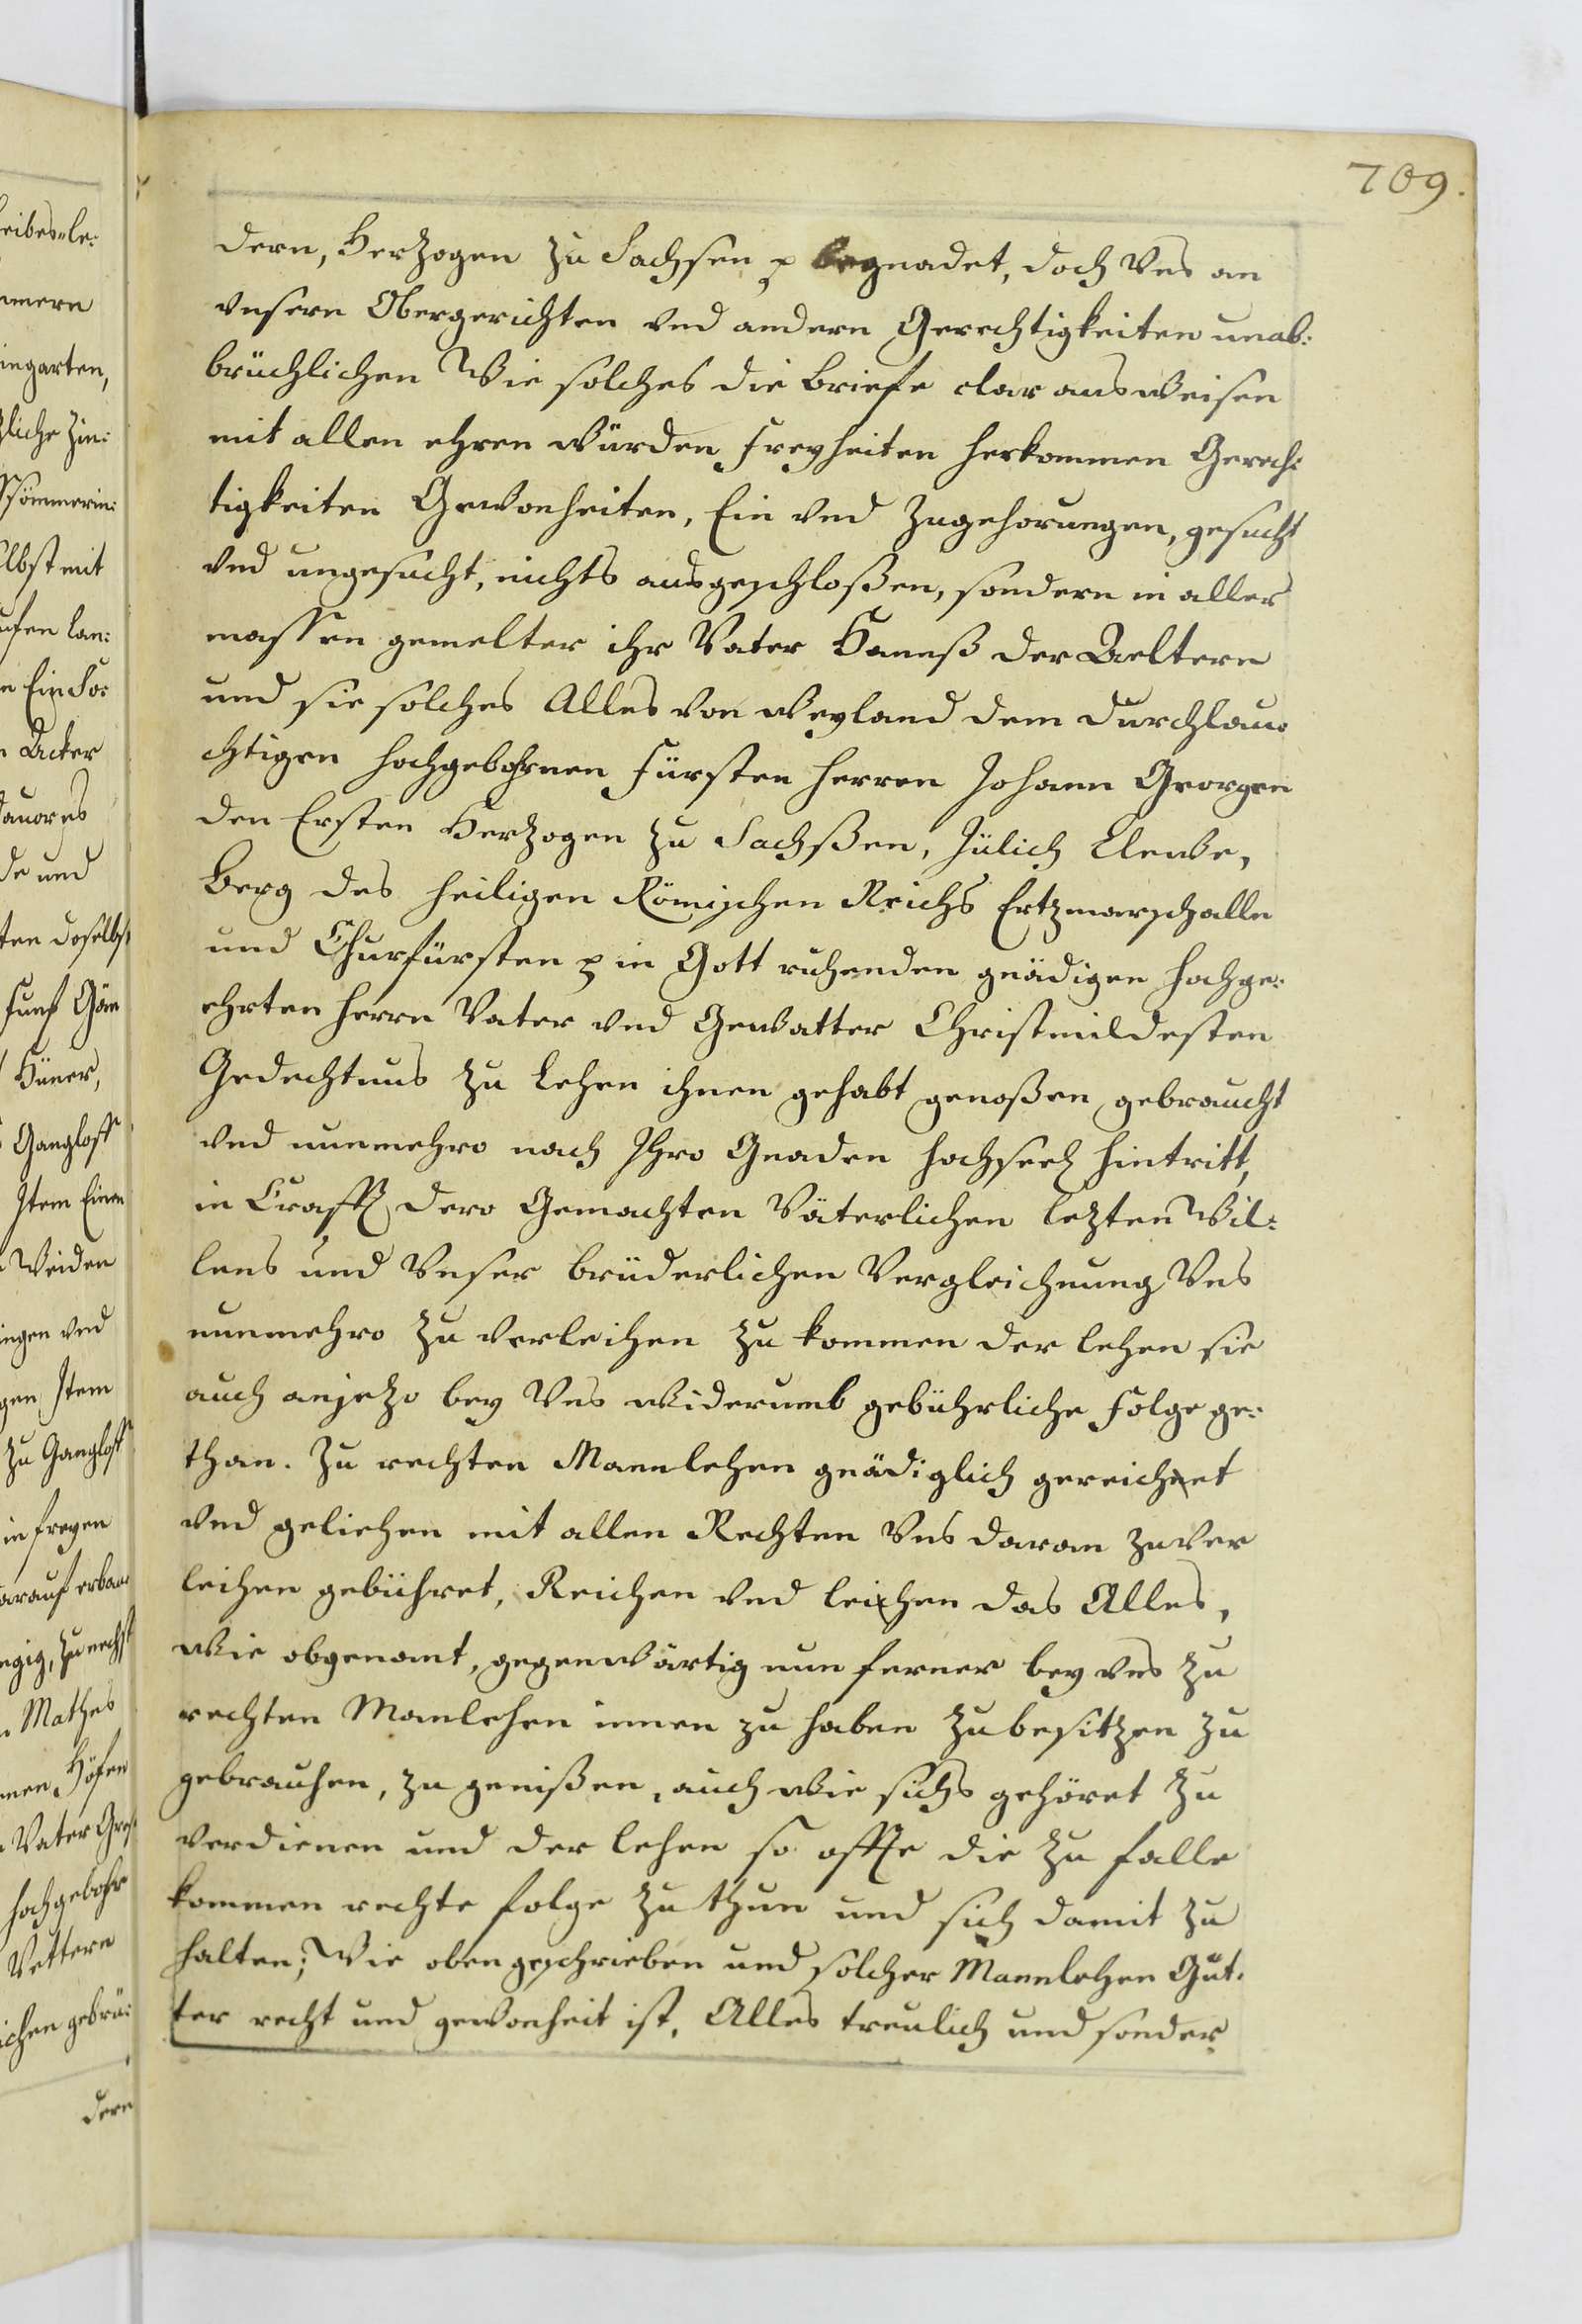 709.
dern, Herzogen zu Sachsen p begnadet, doch Vns an
vnsern Obergerichten vnd andern Gerechtigkeiten unab:
brüchlichen Wie solches die briefe clar ausweisen
mit allen ehren würden freyheiten herkommen Gerech:
tigkeiten Gewonheiten, Ein vnd Zugehorungen, gesucht
vnd ungesucht, nichts ausgeschloßen, sondern in aller
massen gemelter ihr Vater Hannß der Aeltere
und sie solches Alles von weyland dem durchlau
chtigen hochgebohrnen fürsten herren Johann Georgen
den Ersten Herzogen zu Sachßen, Jülich Cleve,
Berg des heiligen Römischen Reichs Ertzmarschalln
und Churfürsten p in Gott ruhenden gnädigen hochge:
ehrten herrn Vater vnd Gevatter Christmildesten
Gedechtnus zu lehen ihnen gehabt genoßen gebraucht
vnd nunmehro nach Ihro Gnaden hochseel hintritt,
in Crafft dero Gemachten Väterlichen lezten Wil:
lens und Vnser brüderlichen Vergleichnung Vns
nunmehro zu verleihen zu kommen der lehen sie
auch anjetzo bey Vns widerumb gebührliche folge ge:
than. Zu rechten Mannlehen gnädiglich gereichet
vnd geliehen mit allen Rechten Vns daran zuver
leihen gebühret, Reichen vnd leihen das Alles,
wie obgenant, gegenwärtig nun ferner bey vns zu
rechten Manlehen innen zu haben zubesitzen zu
gebrauchen, zu genißen, auch wie sichs gehöret zu
verdienen und der lehen so offte die zu falle
kommen rechte folge zu thun und sich damit zu
halten; Wie oben geschrieben und solcher Mannlehen Güt:
ter recht und gewonheit ist, Alles treulich und sonder
eibesle:
ingarten,
gliche Zin:
Sömmerin:
elbst mit
Acker
de und
ten doselbst
funf Gän
Hüner,
Gangloff
Item Einen
Weiden
ingen vnd
gen Item
zu Gangloff
in freyen
darauf erbau
zu nechst
Mathes
Höfen
Vater
hochgebohr
Vettern
ichen gebrü:
dern